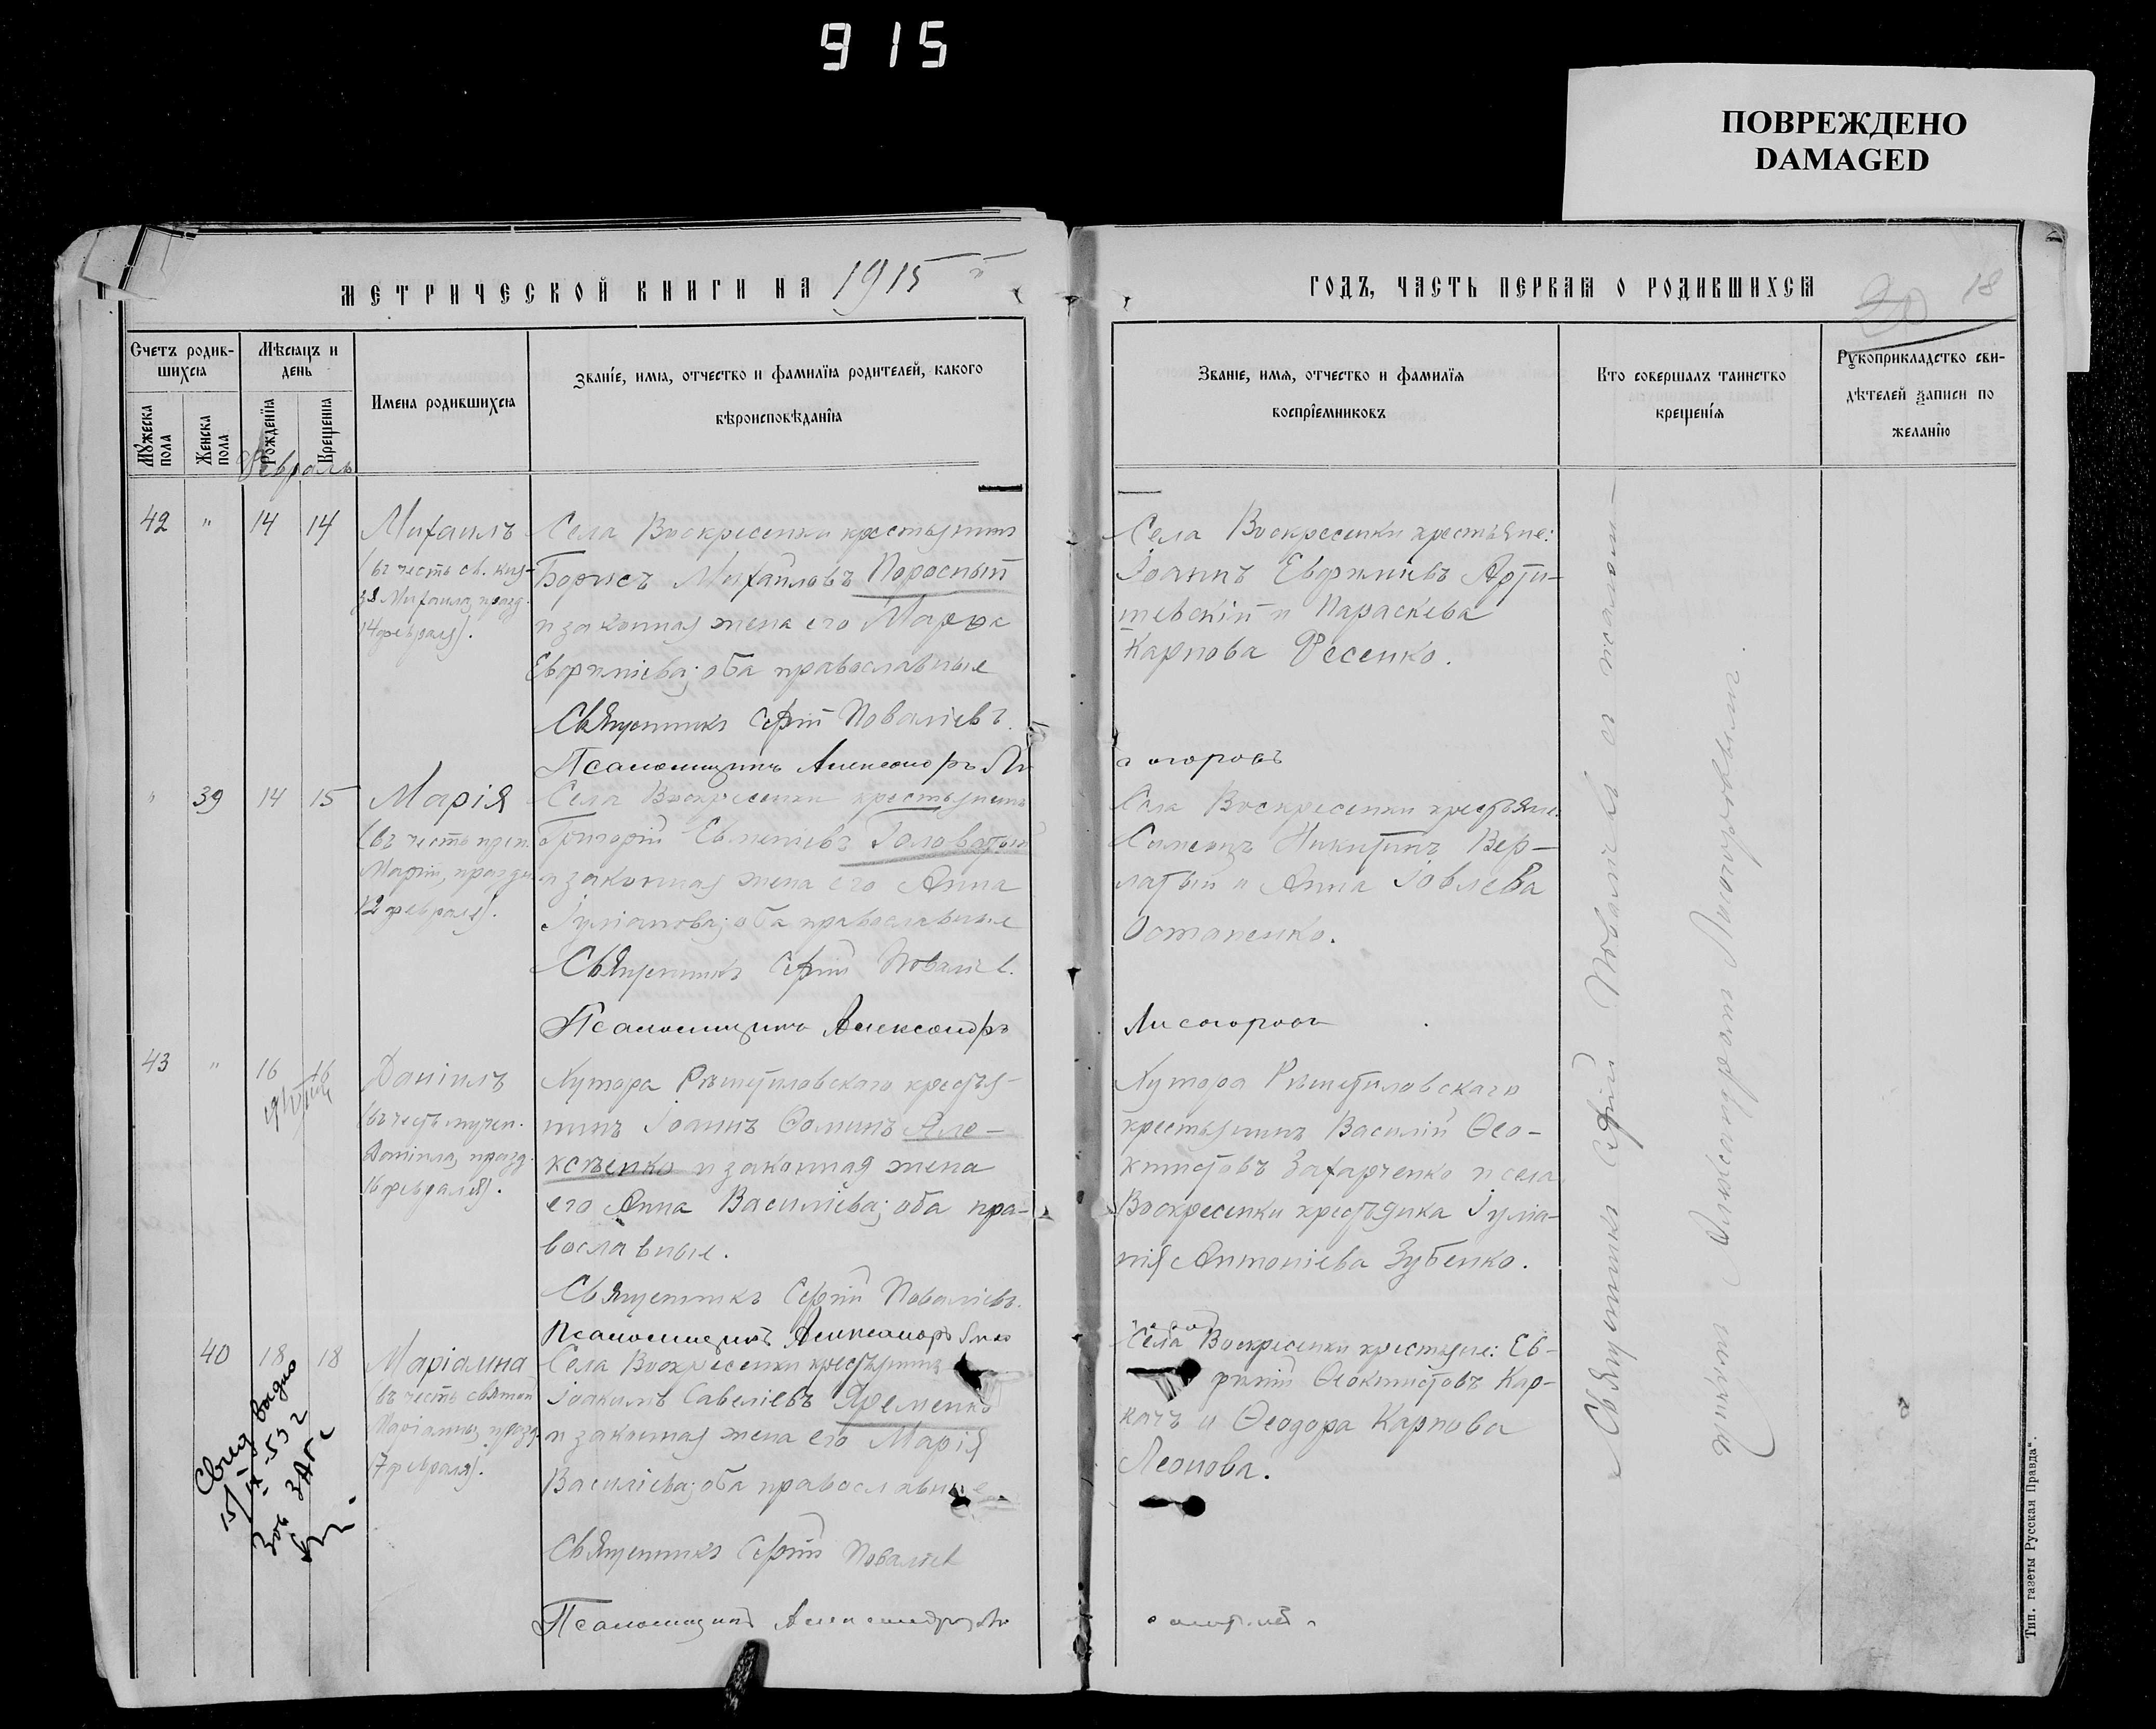 915
ПОВРЕЖДЕНО
DAMAGED
МЕТРИЧЕСКОЙ КНИГИ НА 1915
ГОДЪ, ЧАСТЬ ПЕРВАЯ О РОДИВШИХСЯ
18
Счетъ родив-
шихся
Мужеска
пола
Женска
пола
Мѣсяцъ и
день
Рожденія
Крещенія
Имена родившихся
Званіе, имя, отчество и фамилія родителей, какого
вѣроисповѣданія
Званіе, имя, отчество и фамилія
воспріемниковъ
Кто совершалъ таинство
крещенія
Рукоприкладство сви-
дѣтелей записи по
желанію
Февраль
42 " 14 14
Михаилъ
(въ честь св. кня-
зя Михаила, празд.
14 февраля).
Села Воскресенки крестьянинъ
Борисъ Михаиловъ Поросный
и законная жена его Марѳа
Евфиміева; оба православные
Священникъ Сергій Поваліевъ.
Псаломщикъ Александръ Ли
Села Воскресенки крестьяне:
Іоаннъ Евфиміевъ Арти-
шевскій и Параскева
Карпова Фесенко.
согоровъ
" 39 14 15
Марія
(въ честь преп.
Маріи, праздн.
12 февраля).
Села Воскресенки крестьянинъ
Григорій Евменіевъ Головатый
и законная жена его Анна
Іуліанова; оба православные
Священникъ Сергій Поваліев.
Псаломщикъ Александръ
Села Воскресенки крестьяне:
Симеонъ Никитинъ Вер-
латый и Анна Іовлева
Остапенко.
Лисогоровъ
43 " 16 16
Даніилъ
(въ честь мучен.
Даніила, празд.
16 февраля).
Хутора Рѣшетиловскаго крестья-
нинъ Іоаннъ Ѳоминъ Але-
ксѣенко и законная жена
его Анна Василіева; оба пра-
вославные.
Священникъ Сергій Поваліевъ.
Псаломщикъ Александръ Лисо
Хутора Рѣшетиловскаго
крестьянинъ Василій Ѳео-
ктистовъ Захарченко и села
Воскресенки крестьянка Іуліа-
нія Антоніева Зубенко.
40 18 18
Маріамна
(въ честь святой
Маріамны, празд.
17 февраля).
Села Воскресенки крестьянинъ
Іоакимъ Савеліевъ Яременко
и законная жена его Марія
Василіева; оба православные.
Священникъ Сергій Поваліев
Псаломщикъ Александръ Ли
Села Воскресенки крестьяне: Ев-
фимій Ѳеоктистовъ Кар-
качъ и Ѳеодора Карпова
Леонова.
Свид выдано
15/IX-53 г
ЗАГС
Священникъ Сергій Поваліевъ съ псалом-
щикомъ Александромъ Лисогоровымъ.
Тип. газеты „Русская Правда“.